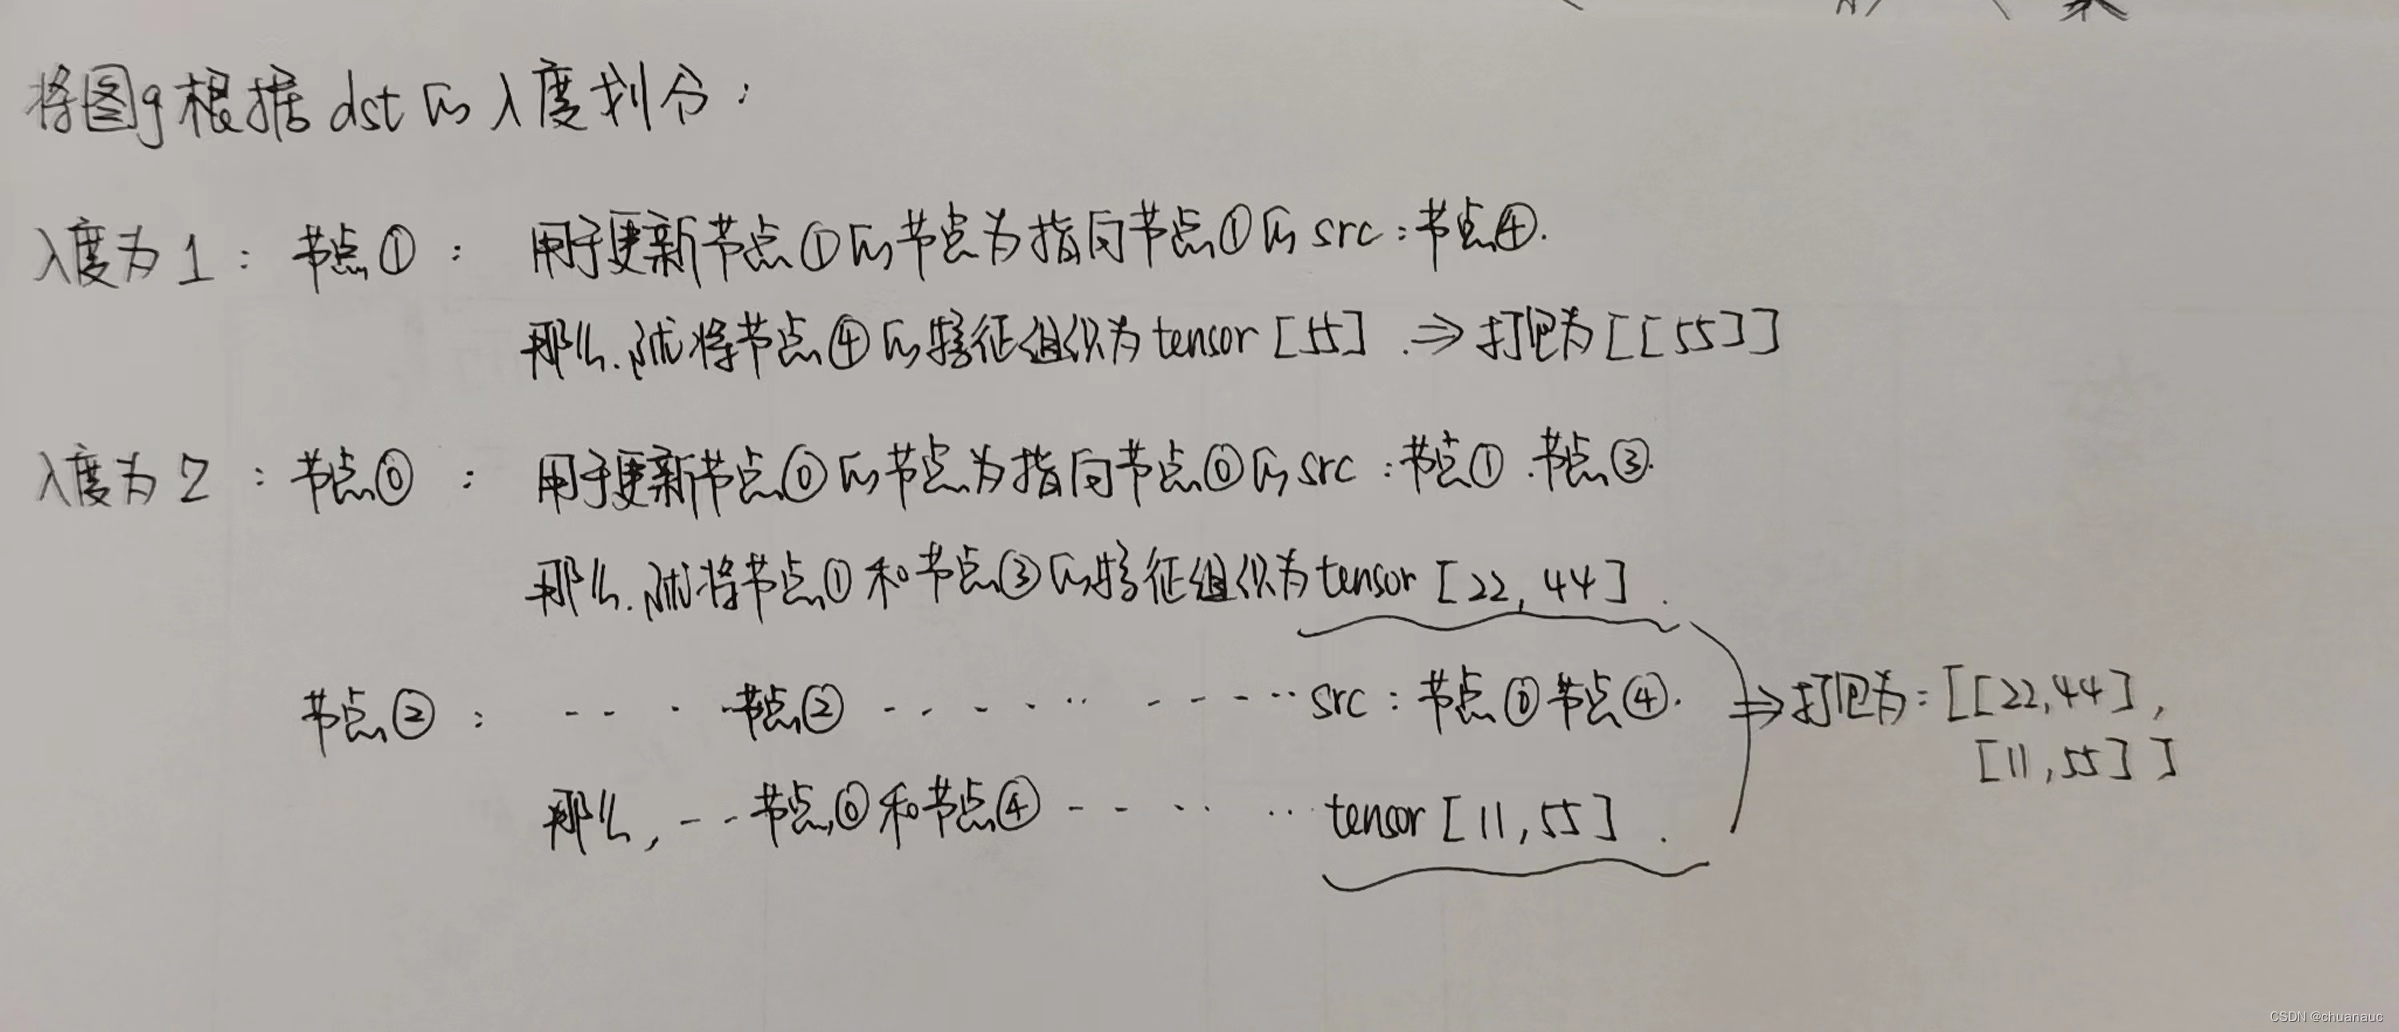 将图g根据dst的入度划分：
入度为1：节点①：用于更新节点①的节点为指向节点①的src：节点④.
那么.就将节点④的特征组织为tensor [55] .⇒打包为[[55]]
入度为2：节点⓪：用于更新节点⓪的节点为指向节点⓪的src：节点①.节点③.
那么.就将节点①和节点③的特征组织为tensor [22, 44] .
节点②：-- · ·节点② -- · - · ·· - --- ··src：节点⓪节点④.
⇒打包为：[[22,44],
[11,55]]
那么, - --节点⓪和节点④ - - · · ··tensor [11,55] .
CSDN @chuanauc